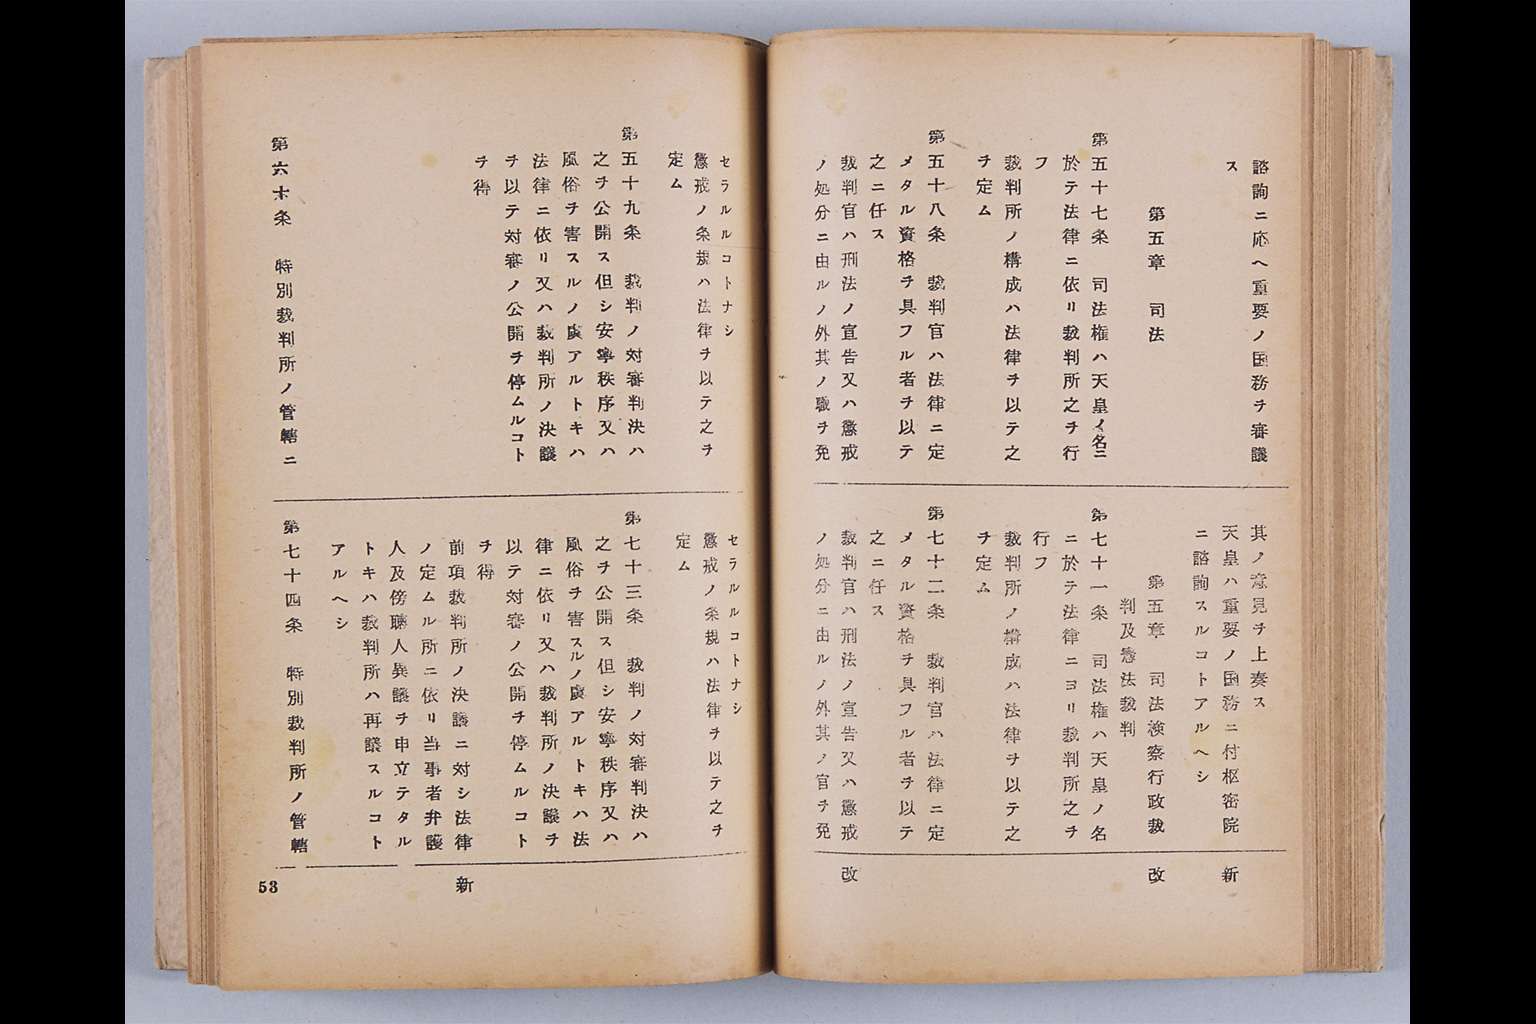 諮詢ニ応ヘ重要ノ国務ヲ審議
ス
第五章　司法
第五十七条　司法権ハ天皇ノ名ニ
於テ法律ニ依リ裁判所之ヲ行
フ
裁判所ノ構成ハ法律ヲ以テ之
ヲ定ム
第五十八条　裁判官ハ法律ニ定
メタル資格ヲ具フル者ヲ以テ
之ニ任ス
裁判官ハ刑法ノ宣告又ハ懲戒
ノ処分ニ由ルノ外其ノ職ヲ免
其ノ意見ヲ上奏ス
天皇ハ重要ノ国務ニ付枢密院
ニ諮詢スルコトアルヘシ
第五章　司法検察行政裁
判及憲法裁判
第七十一条　司法権ハ天皇ノ名
ニ於テ法律ニヨリ裁判所之ヲ
行フ
裁判所ノ構成ハ法律ヲ以テ之
ヲ定ム
第七十二条　裁判官ハ法律ニ定
メタル資格ヲ具フル者ヲ以テ
之ニ任ス
裁判官ハ刑法ノ宣告又ハ懲戒
ノ処分ニ由ルノ外其ノ官ヲ免
新
改
改
セラルルコトナシ
懲戒ノ条規ハ法律ヲ以テ之ヲ
定ム
第五十九条　裁判ノ対審判決ハ
之ヲ公開ス但シ安寧秩序又ハ
風俗ヲ害スルノ虞アルトキハ
法律ニ依リ又ハ裁判所ノ決議
ヲ以テ対審ノ公開ヲ停ムルコト
ヲ得
第六十条　特別裁判所ノ管轄ニ
セラルルコトナシ
懲戒ノ条規ハ法律ヲ以テ之ヲ
定ム
第七十三条　裁判ノ対審判決ハ
之ヲ公開ス但シ安寧秩序又ハ
風俗ヲ害スルノ虞アルトキハ法
律ニ依リ又ハ裁判所ノ決議ヲ
以テ対審ノ公開ヲ停ムルコト
ヲ得
前項裁判所ノ決議ニ対シ法律
ノ定ムル所ニ依リ当事者弁護
人及傍聴人異議ヲ申立テタル
トキハ裁判所ハ再議スルコト
アルヘシ
第七十四条　特別裁判所ノ管轄
新
53